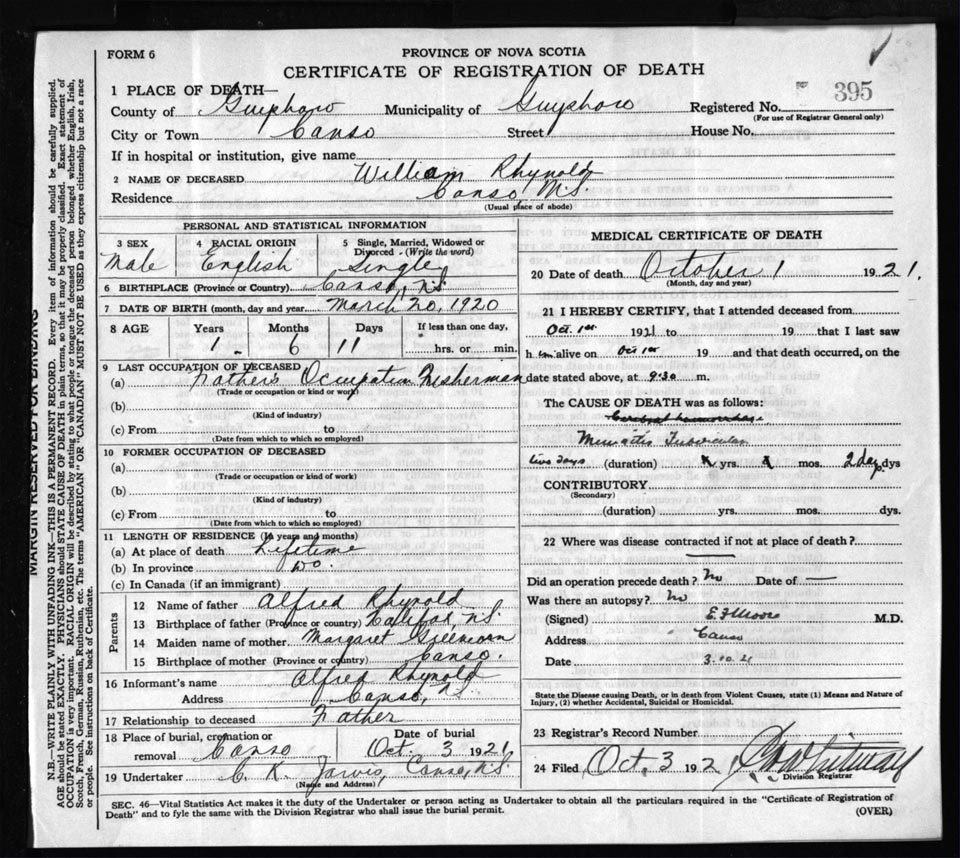 FORM 6
PROVINCE OF NOVA SCOTIA
CERTIFICATE OF REGISTRATION OF DEATH
395
1 PLACE OF DEATH—
County of Guysboro Municipality of Guysboro Registered No.
(For use of Registrar General only)
City or Town Canso Street House No.
If in hospital or institution, give name
2 NAME OF DECEASED William Rhynold
Residence Canso, N.S.
(Usual place of abode)
PERSONAL AND STATISTICAL INFORMATION
3 SEX Male
4 RACIAL ORIGIN English
5 Single, Married, Widowed or Divorced - (Write the word) Single
6 BIRTHPLACE (Province or Country) Canso, N.S.
7 DATE OF BIRTH (month, day and year) March 20, 1920
8 AGE Years Months Days If less than one day,
1 - 6 11 hrs. or min.
9 LAST OCCUPATION OF DECEASED
(a) Father's Occupation Fisherman
(Trade or occupation or kind or work)
(b)
(Kind of industry)
(c) From to
(Date from which to which so employed)
10 FORMER OCCUPATION OF DECEASED
(a)
(Trade or occupation or kind of work)
(b)
(Kind of industry)
(c) From to
(Date from which to which so employed)
11 LENGTH OF RESIDENCE (In years and months)
(a) At place of death Lifetime
(b) In province Do.
(c) In Canada (if an immigrant)
Parents
12 Name of father Alfred Rhynold
13 Birthplace of father (Province or country) Halifax, N.S.
14 Maiden name of mother Margaret
15 Birthplace of mother (Province or country) Canso.
16 Informant's name Alfred Rhynold
Address Canso, N.S.
17 Relationship to deceased Father
18 Place of burial, cremation or removal Canso Date of burial Oct. 3 1921
19 Undertaker C. K. Jarvis, Canso, N.S.
(Name and Address)
MEDICAL CERTIFICATE OF DEATH
20 Date of death October 1 1921.
(Month, day and year)
21 I HEREBY CERTIFY, that I attended deceased from
Oct. 1st 1921 to 19 that I last saw
him alive on Oct 1st 19 and that death occurred, on the
date stated above, at 9.30 m.
The CAUSE OF DEATH was as follows:
Cerebral hemorrhage
Tubercular
two days (duration) yrs. mos. 2 day dys
CONTRIBUTORY
(Secondary)
(duration) yrs. mos. dys.
22 Where was disease contracted if not at place of death?
Did an operation precede death? No Date of —
Was there an autopsy? No
(Signed) E. J. Moore M.D.
Address Canso
Date 3.10.21
State the Disease causing Death, or in death from Violent Causes, state (1) Means and Nature of
Injury, (2) whether Accidental, Suicidal or Homicidal.
23 Registrar's Record Number
24 Filed Oct. 3 1921
Division Registrar
SEC. 46—Vital Statistics Act makes it the duty of the Undertaker or person acting as Undertaker to obtain all the particulars required in the "Certificate of Registration of
Death" and to fyle the same with the Division Registrar who shall issue the burial permit.
(OVER)
MARGIN RESERVED FOR BINDING
N.B.—WRITE PLAINLY WITH UNFADING INK—THIS IS A PERMANENT RECORD. Every item of information should be carefully supplied.
AGE should be stated EXACTLY. PHYSICIANS should STATE CAUSE OF DEATH in plain terms, so that it may be properly classified. Exact statement of
OCCUPATION is very important. RACIAL ORIGIN will be described by stating to what people or tongue the deceased person belonged whether English, Irish,
Scotch, French, German, Russian, Ruthenian, etc. The terms "AMERICAN" OR "CANADIAN" MUST NOT BE USED as they express citizenship but not a race
or people. See instructions on back of Certificate.